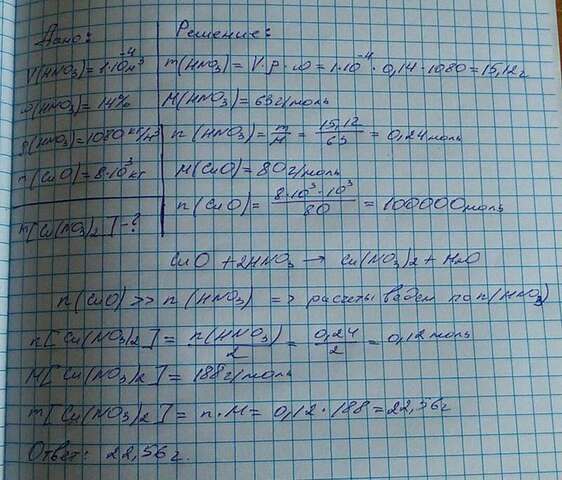 Дано:
V(HNO₃)=1·10⁻⁴м³
ω(HNO₃)=14%
ρ(HNO₃)=1080кг/м³
m(CuO)=8·10³кг
m[Cu(NO₃)₂]-?
Решение:
m(HNO₃)=V·ρ·ω=1·10⁻⁴·0,14·1080=15,12г
M(HNO₃)=63г/моль
n(HNO₃)=m/M=15,12/63=0,24моль
M(CuO)=80г/моль
n(CuO)=8·10³·10³/80=100000моль
CuO+2HNO₃→Cu(NO₃)2+H₂O
n(CuO)>>n(HNO₃) => расчеты ведем по n(HNO₃)
n[Cu(NO₃)₂]=n(HNO₃)/2=0,24/2=0,12моль
M[Cu(NO₃)₂]=188г/моль
m[Cu(NO₃)₂]=n·M=0,12·188=22,56г
Ответ: 22,56г.